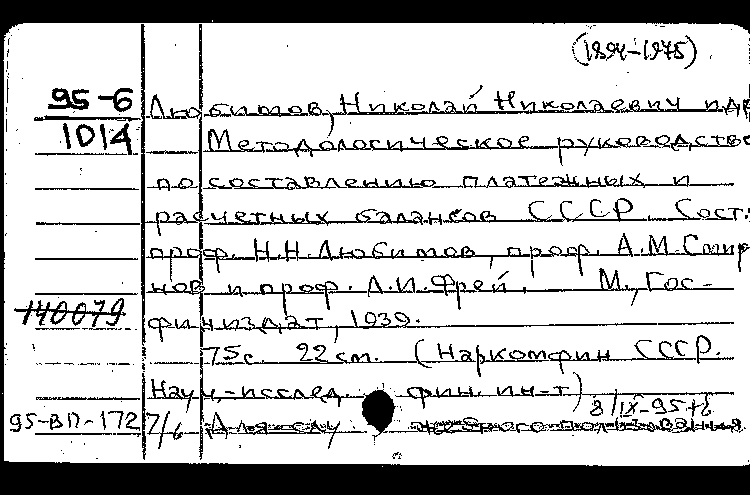 (1894-1975)
95-6
1014
Любимов, Николай Николаевич и др
Методологическое руководство
по составлению платежных и
расчетных балансов СССР. Сост.:
проф. Н.Н.Любимов, проф. А.М.Смир-
нов и проф. Л.И.Фрей. М., Гос-
140079
финиздат, 1939.
75с. 22см. (Наркомфин СССР.
Науч.-исслед. фин. ин-т)
8/IX-95
95-ВП-172 7/6 Для служебного пользования